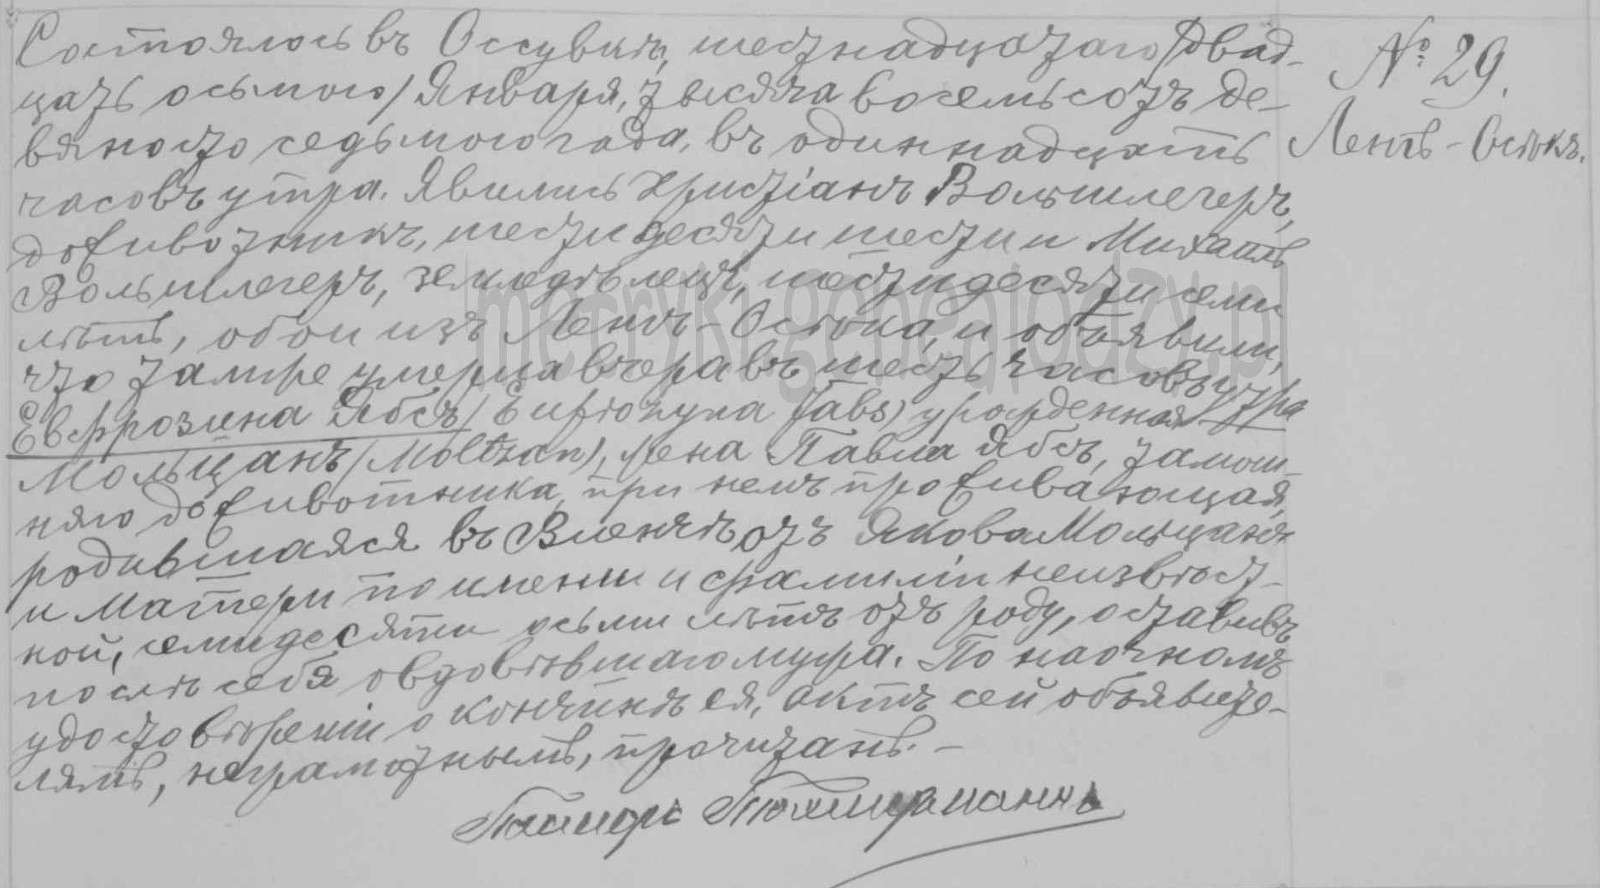 Состоялось въ Оссувкѣ, шестнадцатаго /двад-
цать осьмого/ Января, тысяча восемьсотъ де-
вяносто седьмого года, въ одиннадцать
часовъ утра. Явились Христіанъ Вольшлегеръ,
доживотникъ, шестидесяти шести и Михаилъ
Вольшлегеръ, земледѣлецъ, шестидесяти семи
лѣтъ, обои изъ Ленгъ-Остока, и объявили,
что тамже умерла вчера въ шесть часовъ утра
Евфрозина Ябсъ /Eufrozyna Jabs/ урожденная
Мольцанъ /Moltzan/, жена Павла Ябсъ, тамош-
няго доживотника, при немъ проживающая,
родившаяся въ отъ Якова Мольцанъ
и матери по имени и фамиліи неизвѣст-
ной, семидесяти осьми лѣтъ отъ роду, оставивъ
послѣ себя овдовѣвшаго мужа. По наочномъ
удостовѣреніи о кончинѣ ея, актъ сей объявите-
лямъ, неграмотнымъ, прочитанъ. –
Пасторъ
№ 29.
Ленгъ-Остокъ.
metryki.genealodzy.pl